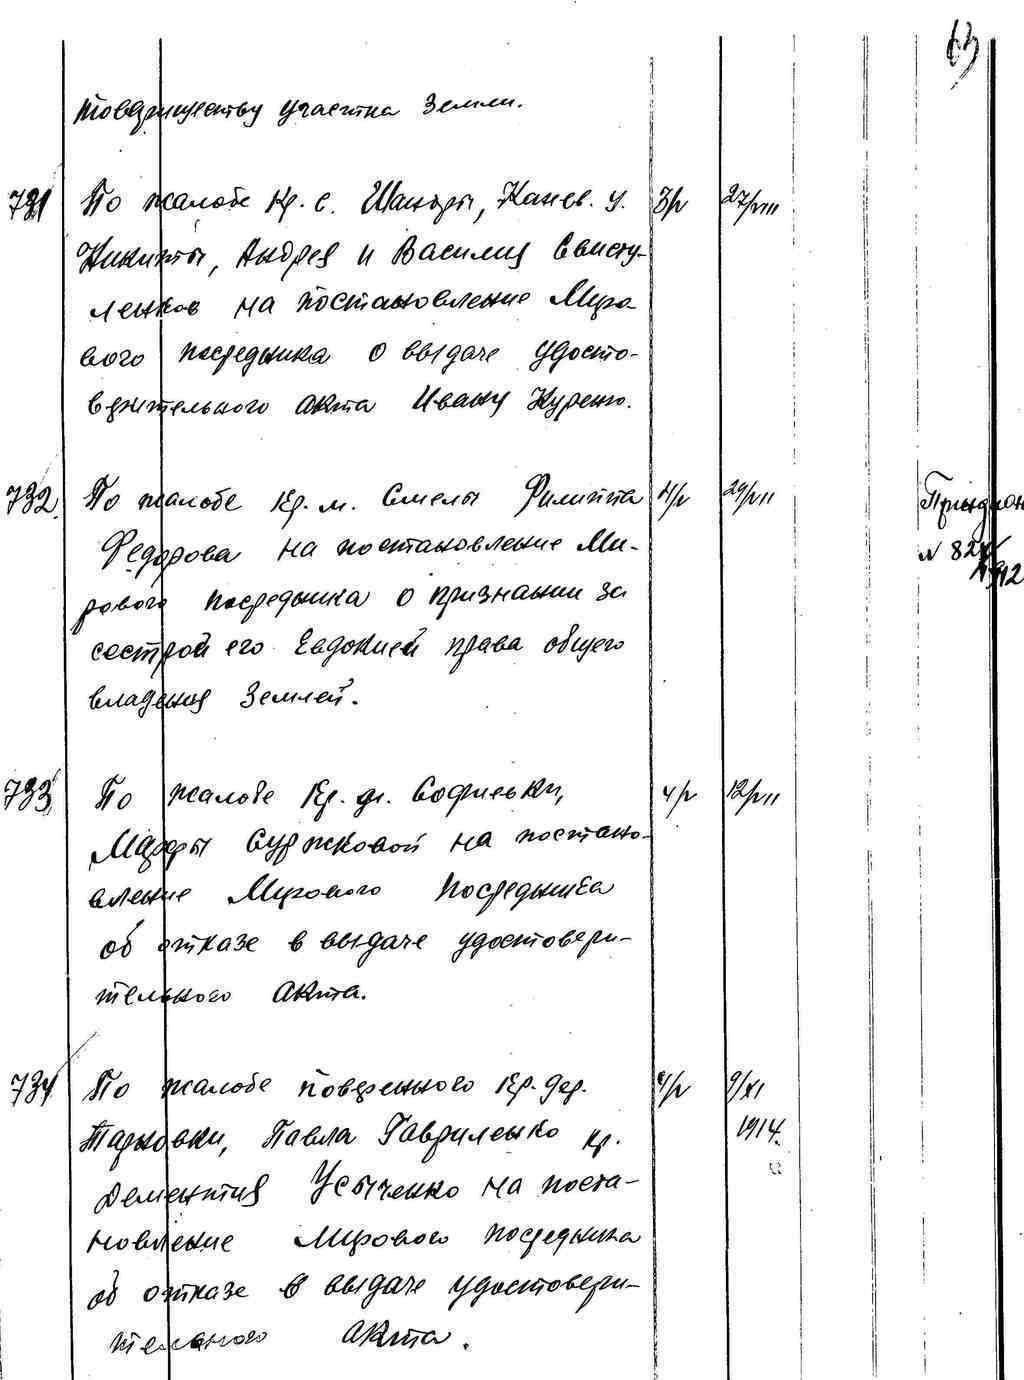 63
товариществу участка земли.
731 По жалобе кр. с. Шандры, Канев. у. 3/V 27/VIII
Никиты, Андрея и Василия Свисту-
ленков на постановление Миро-
вого посредника о выдаче удосто-
верительного акта Ивану Куренко.
732 По жалобе кр. м. Смелы Филиппа 4/V 29/VII
Федорова на постановление Ми-
рового посредника о признании за
сестрой его Евдокией права общего
владения землей.
№ 824
1912
733 По жалобе кр. д. Софиевки, 4/V 12/VII
Марфы Суржковой на постано-
вление Мирового Посредника
об отказе в выдаче удостовери-
тельного акта.
734 По жалобе поверенного кр. дер. 4/V 9/XI
Тарновки, Павла Гавриленко кр. 1914.
Дементия Усыченко на поста-
новление Мирового посредника
об отказе в выдаче удостовери-
тельного акта.